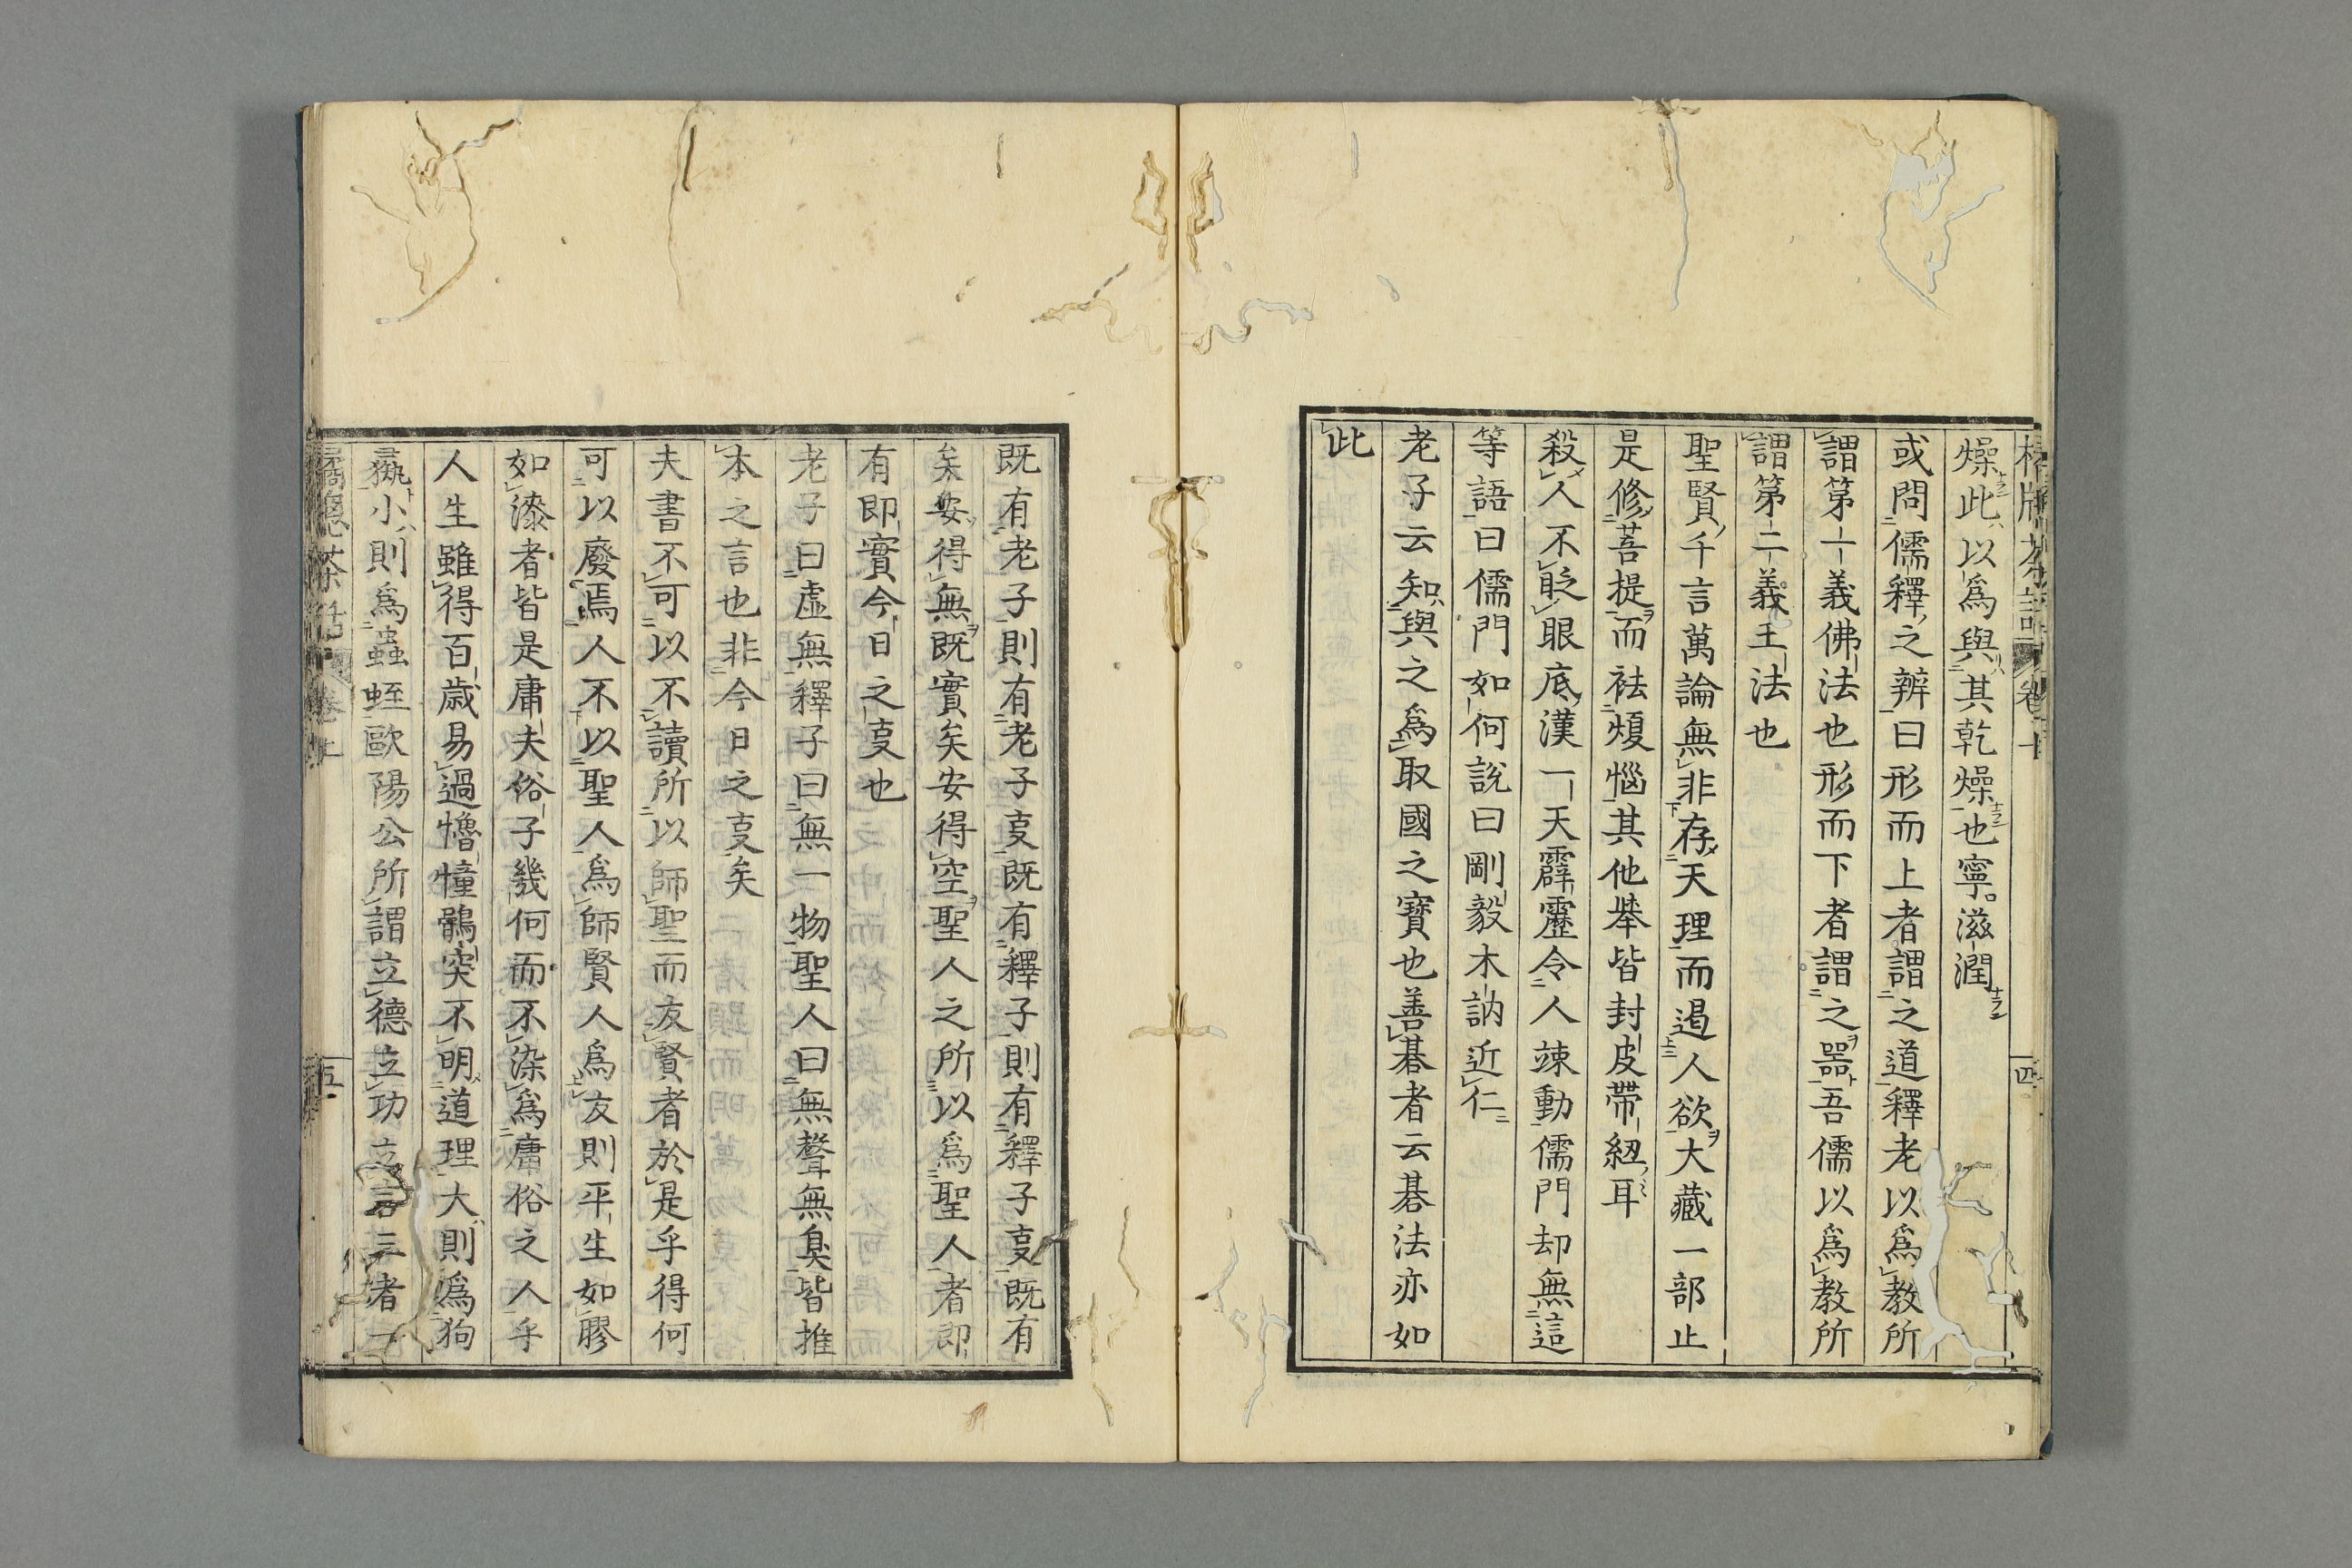 燥此以爲與其乾燥也寧滋潤
或問儒釋之辨曰形而上者謂之道釋老以爲教所
謂第一義佛法也形而下者謂之噐吾儒以爲教所
謂第二義王法也
聖賢千言萬論無非存天理而遏人欲大藏一部止
是修菩提而袪煩惱其他犖皆封皮帶紐耳
殺人不貶眼底漢一天霹靂令人竦動儒門却無這
等語曰儒門如何說曰剛毅木訥近仁
老子云知與之爲取國之寶也善碁者云碁法亦如
此
四
既有老子則有老子叓既有釋子則有釋子叓既有
矣安得無既實矣安得空聖人之所以爲聖人者即
有即實今日之叓也
老子曰虛無釋子曰無一物聖人曰無聲無臭皆推
本之言也非今日之叓矣
夫書不可以不讀所以師聖而友賢者於是乎得何
可以廢焉人不以聖人爲師賢人爲友則平生如膠
如漆者皆是庸夫俗子幾何而不染爲庸俗之人乎
人生雖得百歳易過懵憧鶻突不明道理大則爲狗
彘小則爲蟲蛭歐陽公所謂立德立功立言三者一
五